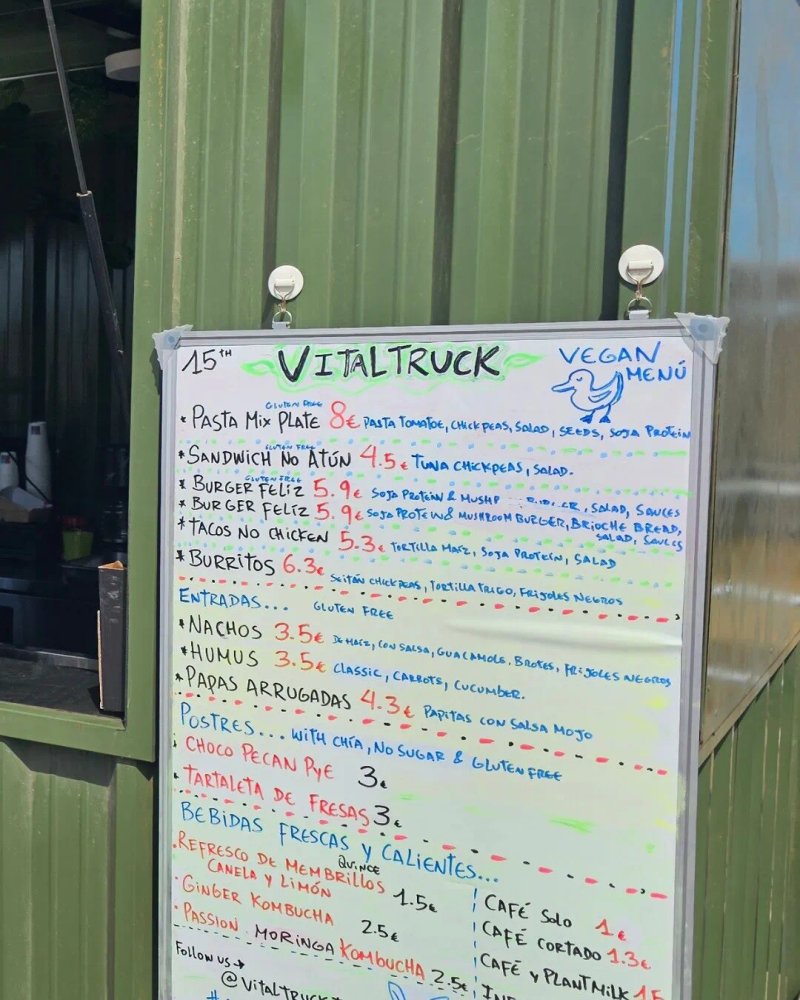 15TH VITALTRUCK VEGAN MENÚ
GLUTEN FREE
* PASTA MIX PLATE 8€ PASTA TOMATOE, CHICKPEAS, SALAD, SEEDS, SOJA PROTEIN
GLUTEN FREE
* SANDWICH NO ATÚN 4.5€ TUNA CHICKPEAS, SALAD.
GLUTEN FREE
* BURGER FELIZ 5.9€ SOJA PROTEIN & SALAD, SAUCES
* BURGER FELIZ 5.9€ SOJA PROTEIN & MUSHROOM BURGER, BRIOCHE BREAD, SALAD, SAUCES
* TACOS NO CHICKEN 5.3€ TORTILLA MAÍZ, SOJA PROTEIN, SALAD
* BURRITOS 6.3€ SEITÁN CHICKPEAS, TORTILLA TRIGO, FRIJOLES NEGROS
ENTRADAS... GLUTEN FREE
* NACHOS 3.5€ DE MAÍZ, CON SALSA, GUACAMOLE, BROTES, FRIJOLES NEGROS
* HUMUS 3.5€ CLASSIC, CARROTS, CUCUMBER.
* PAPAS ARRUGADAS 4.3€ PAPITAS CON SALSA MOJO
POSTRES... WITH CHÍA, NO SUGAR & GLUTEN FREE
· CHOCO PECAN PYE 3€
· TARTALETA DE FRESAS 3€
BEBIDAS FRESCAS Y CALIENTES...
QUINCE
· REFRESCO DE MEMBRILLOS
CANELA Y LIMÓN 1.5€
· GINGER KOMBUCHA 2.5€
· PASSION MORINGA KOMBUCHA 2.5€
CAFÉ SOLO 1€
CAFÉ CORTADO 1.3€
CAFÉ Y PLANT MILK 1.5
FOLLOW US →
@VITALTRUCK